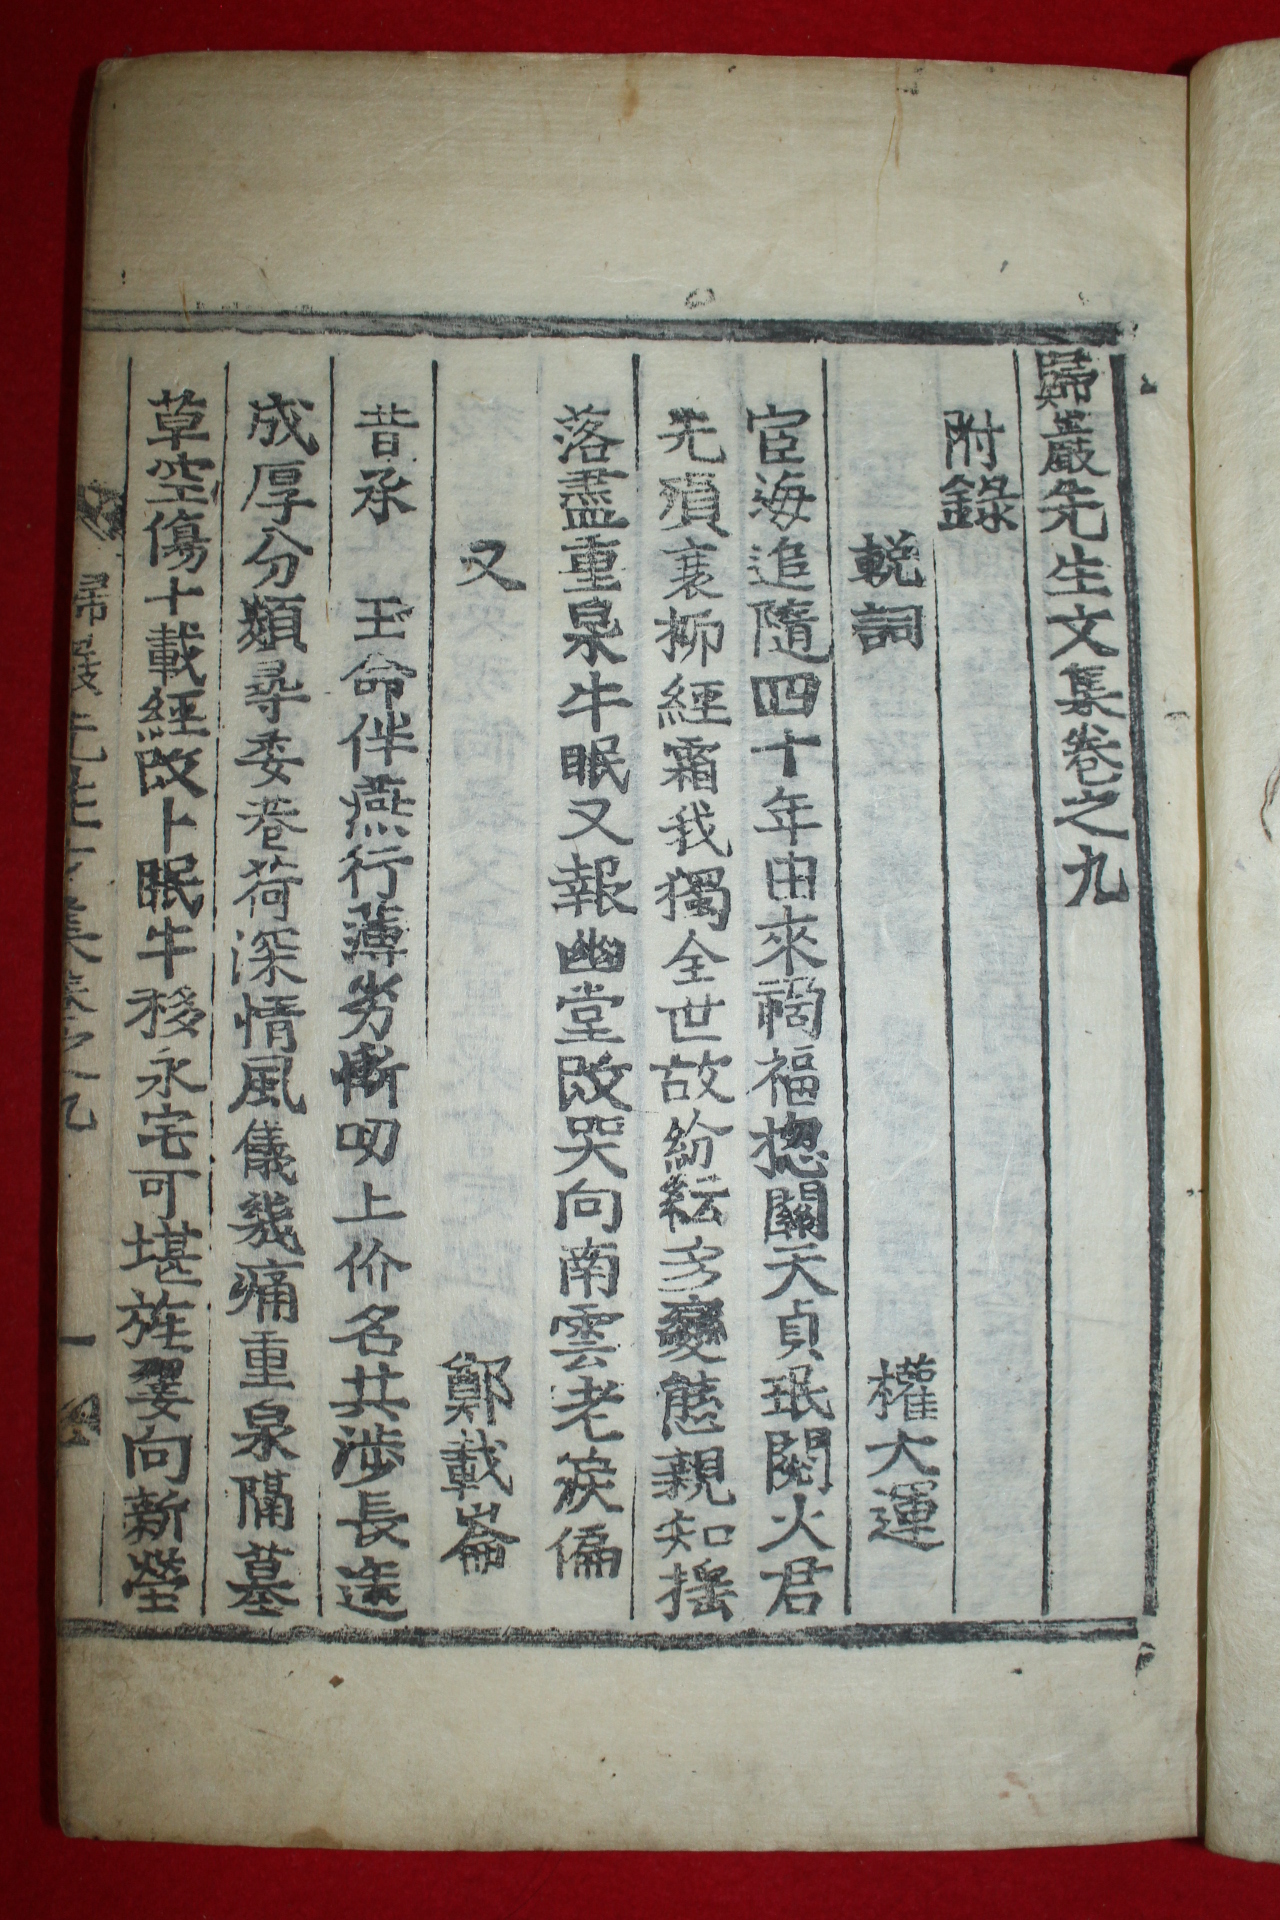 歸巖先生文集卷之九
附錄
輓詞 權大運
宦海追隨四十年由來禍福摠關天貞珉閱火君
先殞衰柳經霜我獨全世故紛紜多變態親知搖
落盡重泉牛眠又報幽堂改哭向南雲老淚偏
又 鄭載崙
昔承 王命伴燕行薄劣慚叨上价名共涉長途
成厚分類尋委巷荷深情風儀幾痛重泉隔墓
草空傷十載經改卜眠牛移永宅可堪旌翣向新塋
歸巖先生文集卷之九 一